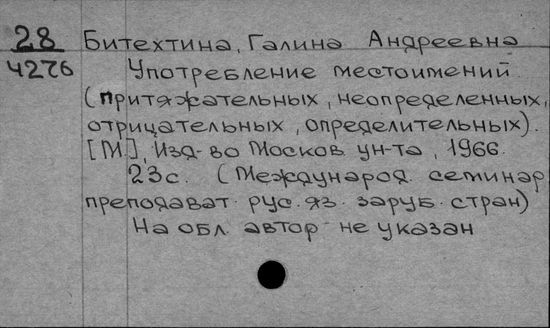 28 Битехтина, Галина Андреевна
4276 Употребление местоимений
(притяжательных, неопределенных,
отрицательных, определительных).
[М.], Изд-во Москов. ун-та, 1966.
23с. (Международ. семинар
преподават. рус. яз. заруб. стран)
На обл. автор не указан